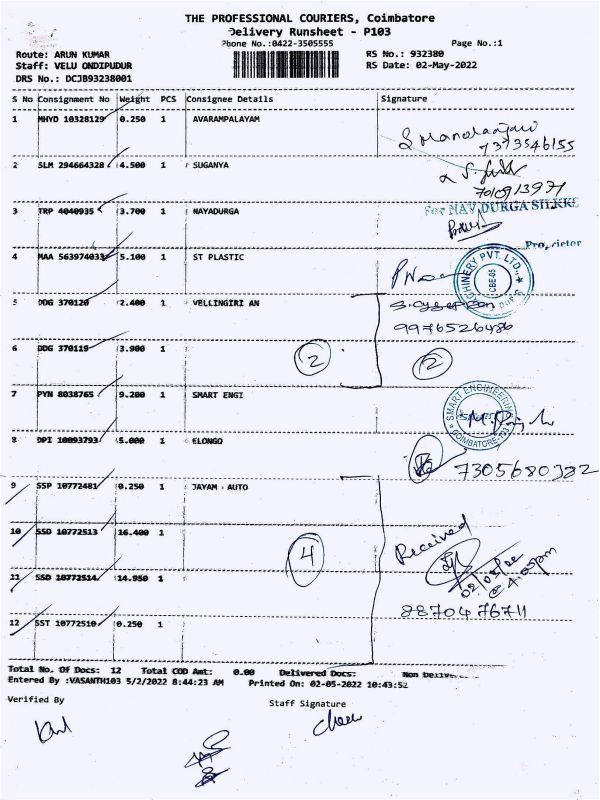 THE PROFESSIONAL COURIERS, Coimbatore
Delivery Runsheet - P103
Phone No.:0422-3505555 Page No.:1
Route: ARUN KUMAR RS No.: 932380
Staff: VELU ONDIPUDUR RS Date: 02-May-2022
DRS No.: DCJB93238001
S No Consignment No Weight PCS Consignee Details Signature
1 MHYD 10328129 0.250 1 AVARAMPALAYAM
7373546155
2 SLM 294664328 4.500 1 SUGANYA
3 TRP 4040935 3.700 1 NAYADURGA
For NAV DURGA SILKKS
Proprietor
4 MAA 563974033 5.100 1 ST PLASTIC
CHINERY PVT. LTD.,
CBE-05
5 DDG 370120 2.400 1 VELLINGIRI AN
9976526486
6 DDG 370119 3.900 1
2 2
7 PYN 8038765 9.200 1 SMART ENGI
SMART ENGINEERING
COIMBATORE-103
8 DPI 10093793 5.000 1 ELONGO
7305680322
9 SSP 10772481 0.250 1 JAYAM - AUTO
10 SSD 10772513 16.400 1
Received
4
02/05/22
@ 4.05pm
11 SSD 10772514 14.950 1
8870476711
12 SST 10772510 0.250 1
Total No. Of Docs: 12 Total COD Amt: 0.00 Delivered Docs: Non Delive
Entered By :VASANTH103 5/2/2022 8:44:23 AM Printed On: 02-05-2022 10:43:52
Verified By Staff Signature